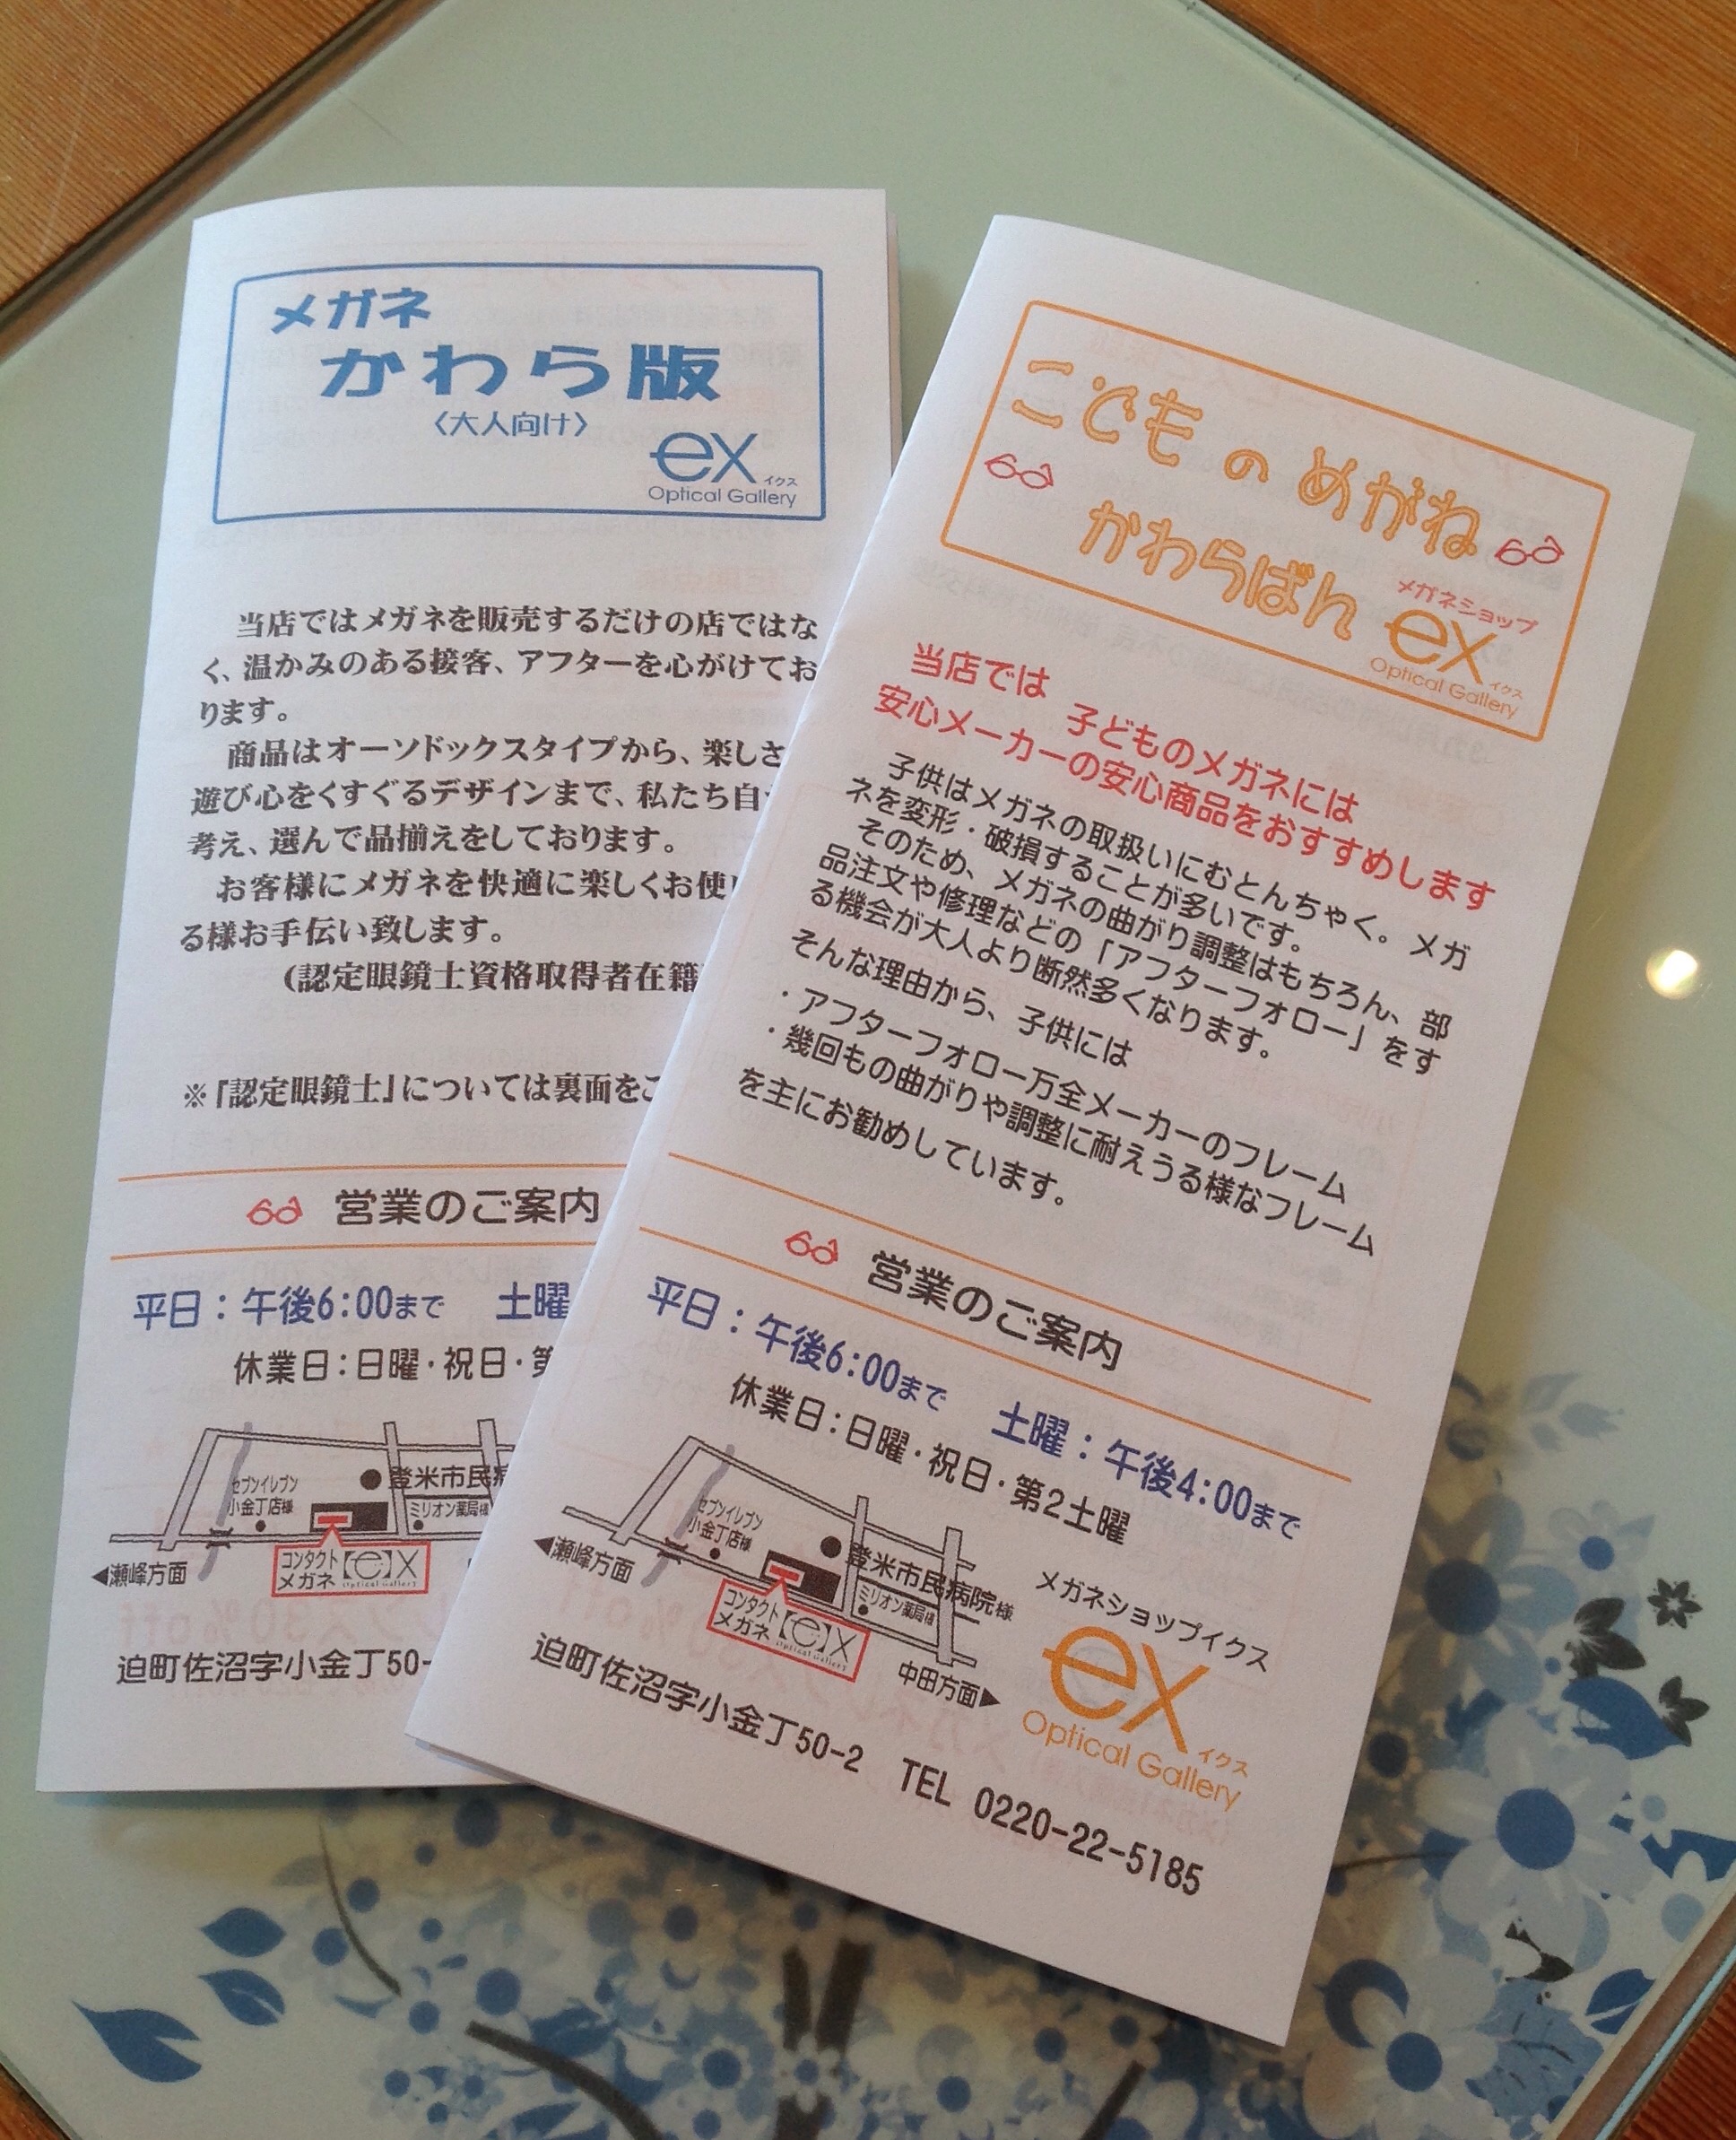 メガネ
かわら版
〈大人向け〉
ex イクス
Optical Gallery
当店ではメガネを販売するだけの店ではな
く、温かみのある接客、アフターを心がけてお
ります。
商品はオーソドックスタイプから、楽しさ
遊び心をくすぐるデザインまで、私たち自
考え、選んで品揃えをしております。
お客様にメガネを快適に楽しくお使
る様お手伝い致します。
(認定眼鏡士資格取得者在籍
※「認定眼鏡士」については裏面をご
営業のご案内
平日：午後6:00まで 土曜
休業日：日曜・祝日・第
セブンイレブン
小金丁店様
登米市民病
ミリオン薬局様
◀瀬峰方面
コンタクト
メガネ
ex
Optical Gallery
迫町佐沼字小金丁50-
こどものめがね
かわらばん
メガネショップ
ex イクス
Optical Gallery
当店では 子どものメガネには
安心メーカーの安心商品をおすすめします
子供はメガネの取扱いにむとんちゃく。メガ
ネを変形・破損することが多いです。
そのため、メガネの曲がり調整はもちろん、部
品注文や修理などの「アフターフォロー」をす
る機会が大人より断然多くなります。
そんな理由から、子供には
・アフターフォロー万全メーカーのフレーム
・幾回もの曲がりや調整に耐えうる様なフレーム
を主にお勧めしています。
営業のご案内
平日：午後6:00まで 土曜：午後4:00まで
休業日：日曜・祝日・第2土曜
セブンイレブン
小金丁店様
登米市民病院様
ミリオン薬局様
◀瀬峰方面
コンタクト
メガネ
ex
Optical Gallery
中田方面▶
メガネショップイクス
ex イクス
Optical Gallery
迫町佐沼字小金丁50-2 TEL 0220-22-5185